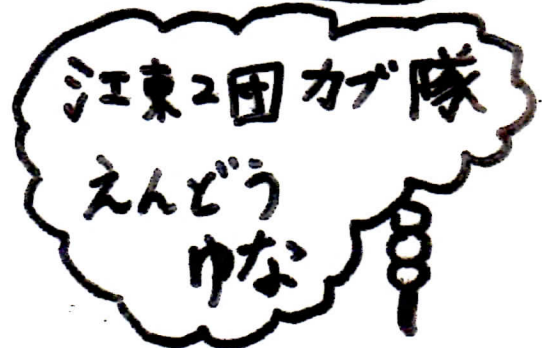 江東2団カブ隊
えんどう
ゆな